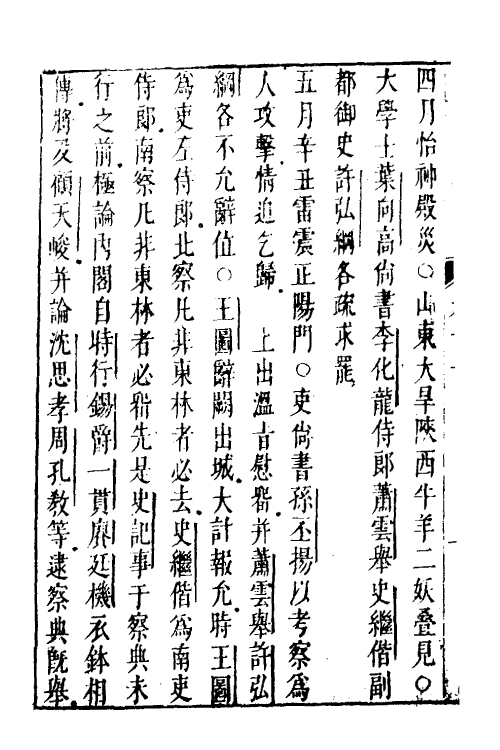 四月怡神殿災○山東大旱陝西牛羊二妖疊見○
大學士葉向高尚書李化龍侍郎蕭雲舉史繼偕副
都御史許弘綱各疏求罷
五月辛丑雷震正陽門○吏尚書孫丕揚以考察為
人攻擊情迫乞歸　上出溫旨慰留并蕭雲舉許弘
綱各不允辭值○王圖辭闕出城大計報允時王圖
為吏左侍郎北察凡非東林者必去史繼偕為南吏
侍郎南察凡非東林者必留先是史記事于察典未
行之前極論內閣自時行錫爵一貫賡廷機衣鉢相
傳將及顧天峻并論沈思孝周孔教等逮察典既舉